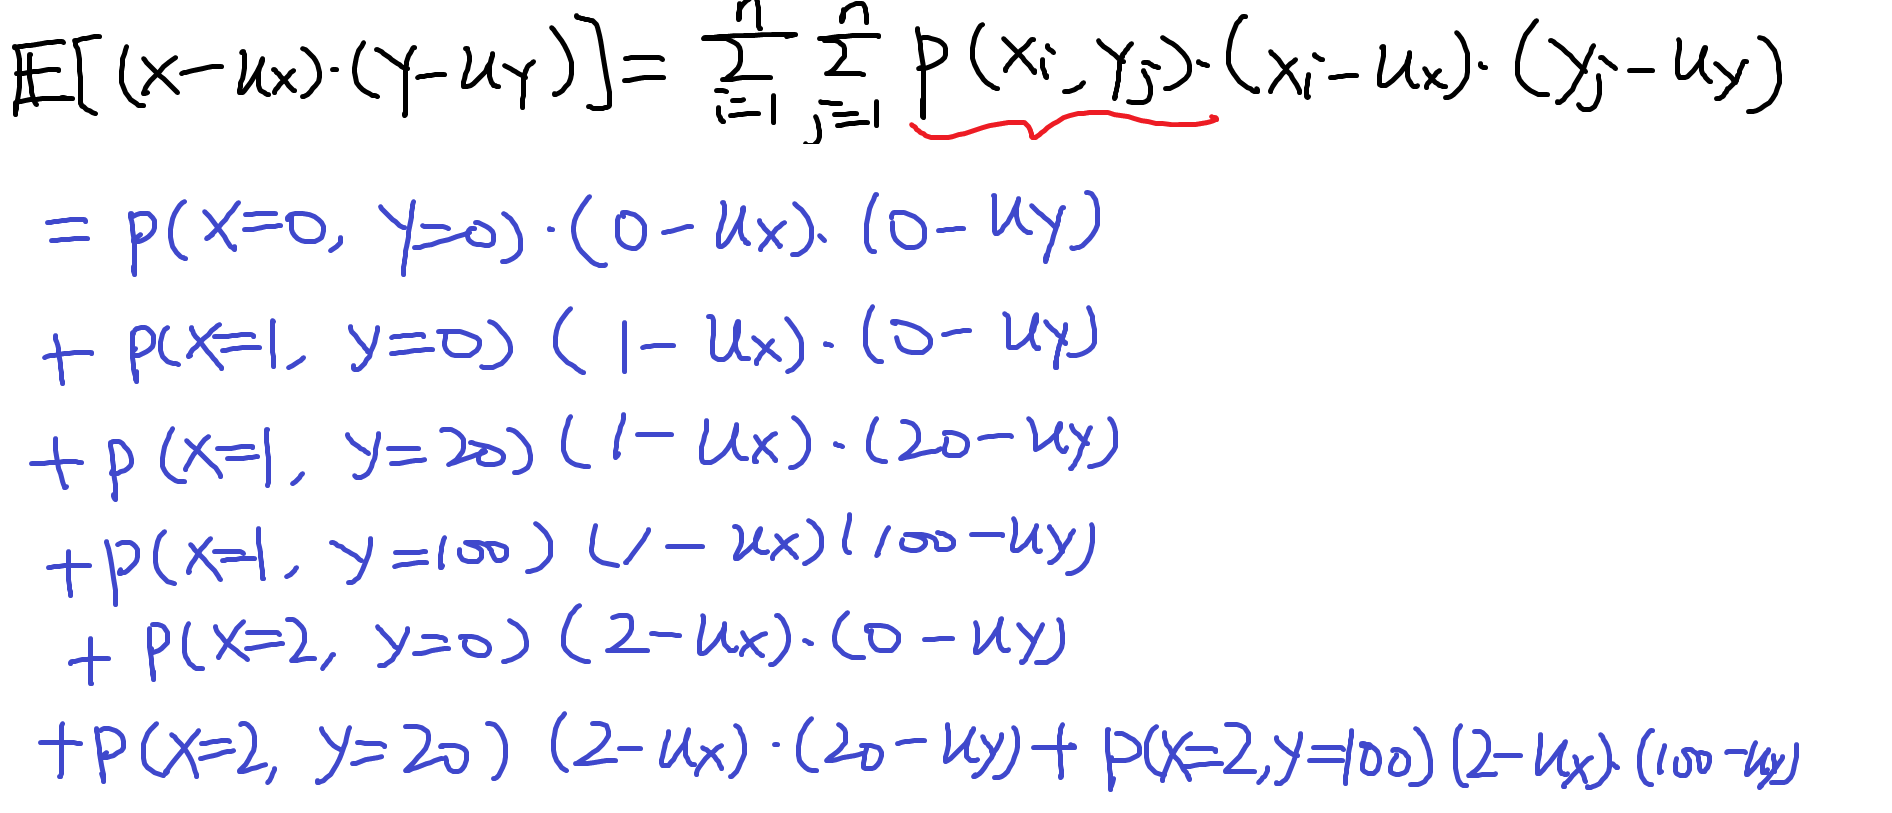 E[(X-ux)·(Y-uY)]=∑ⁿᵢ₌₁ ∑ⁿⱼ₌₁ p(xi,yj)·(xi-ux)·(yj-uy)
= p(X=0, Y=0)·(0-ux)·(0-uy)
+ p(X=1, y=0)(1-ux)·(0-uy)
+p(X=1, y=20)(1-ux)·(20-uy)
+p(X=1, y=100)(1-ux)(100-uy)
+ p(X=2, y=0)(2-ux)·(0-uy)
+p(X=2, y=20)(2-ux)·(20-uy)+p(X=2,y=100)(2-ux)·(100-uy)